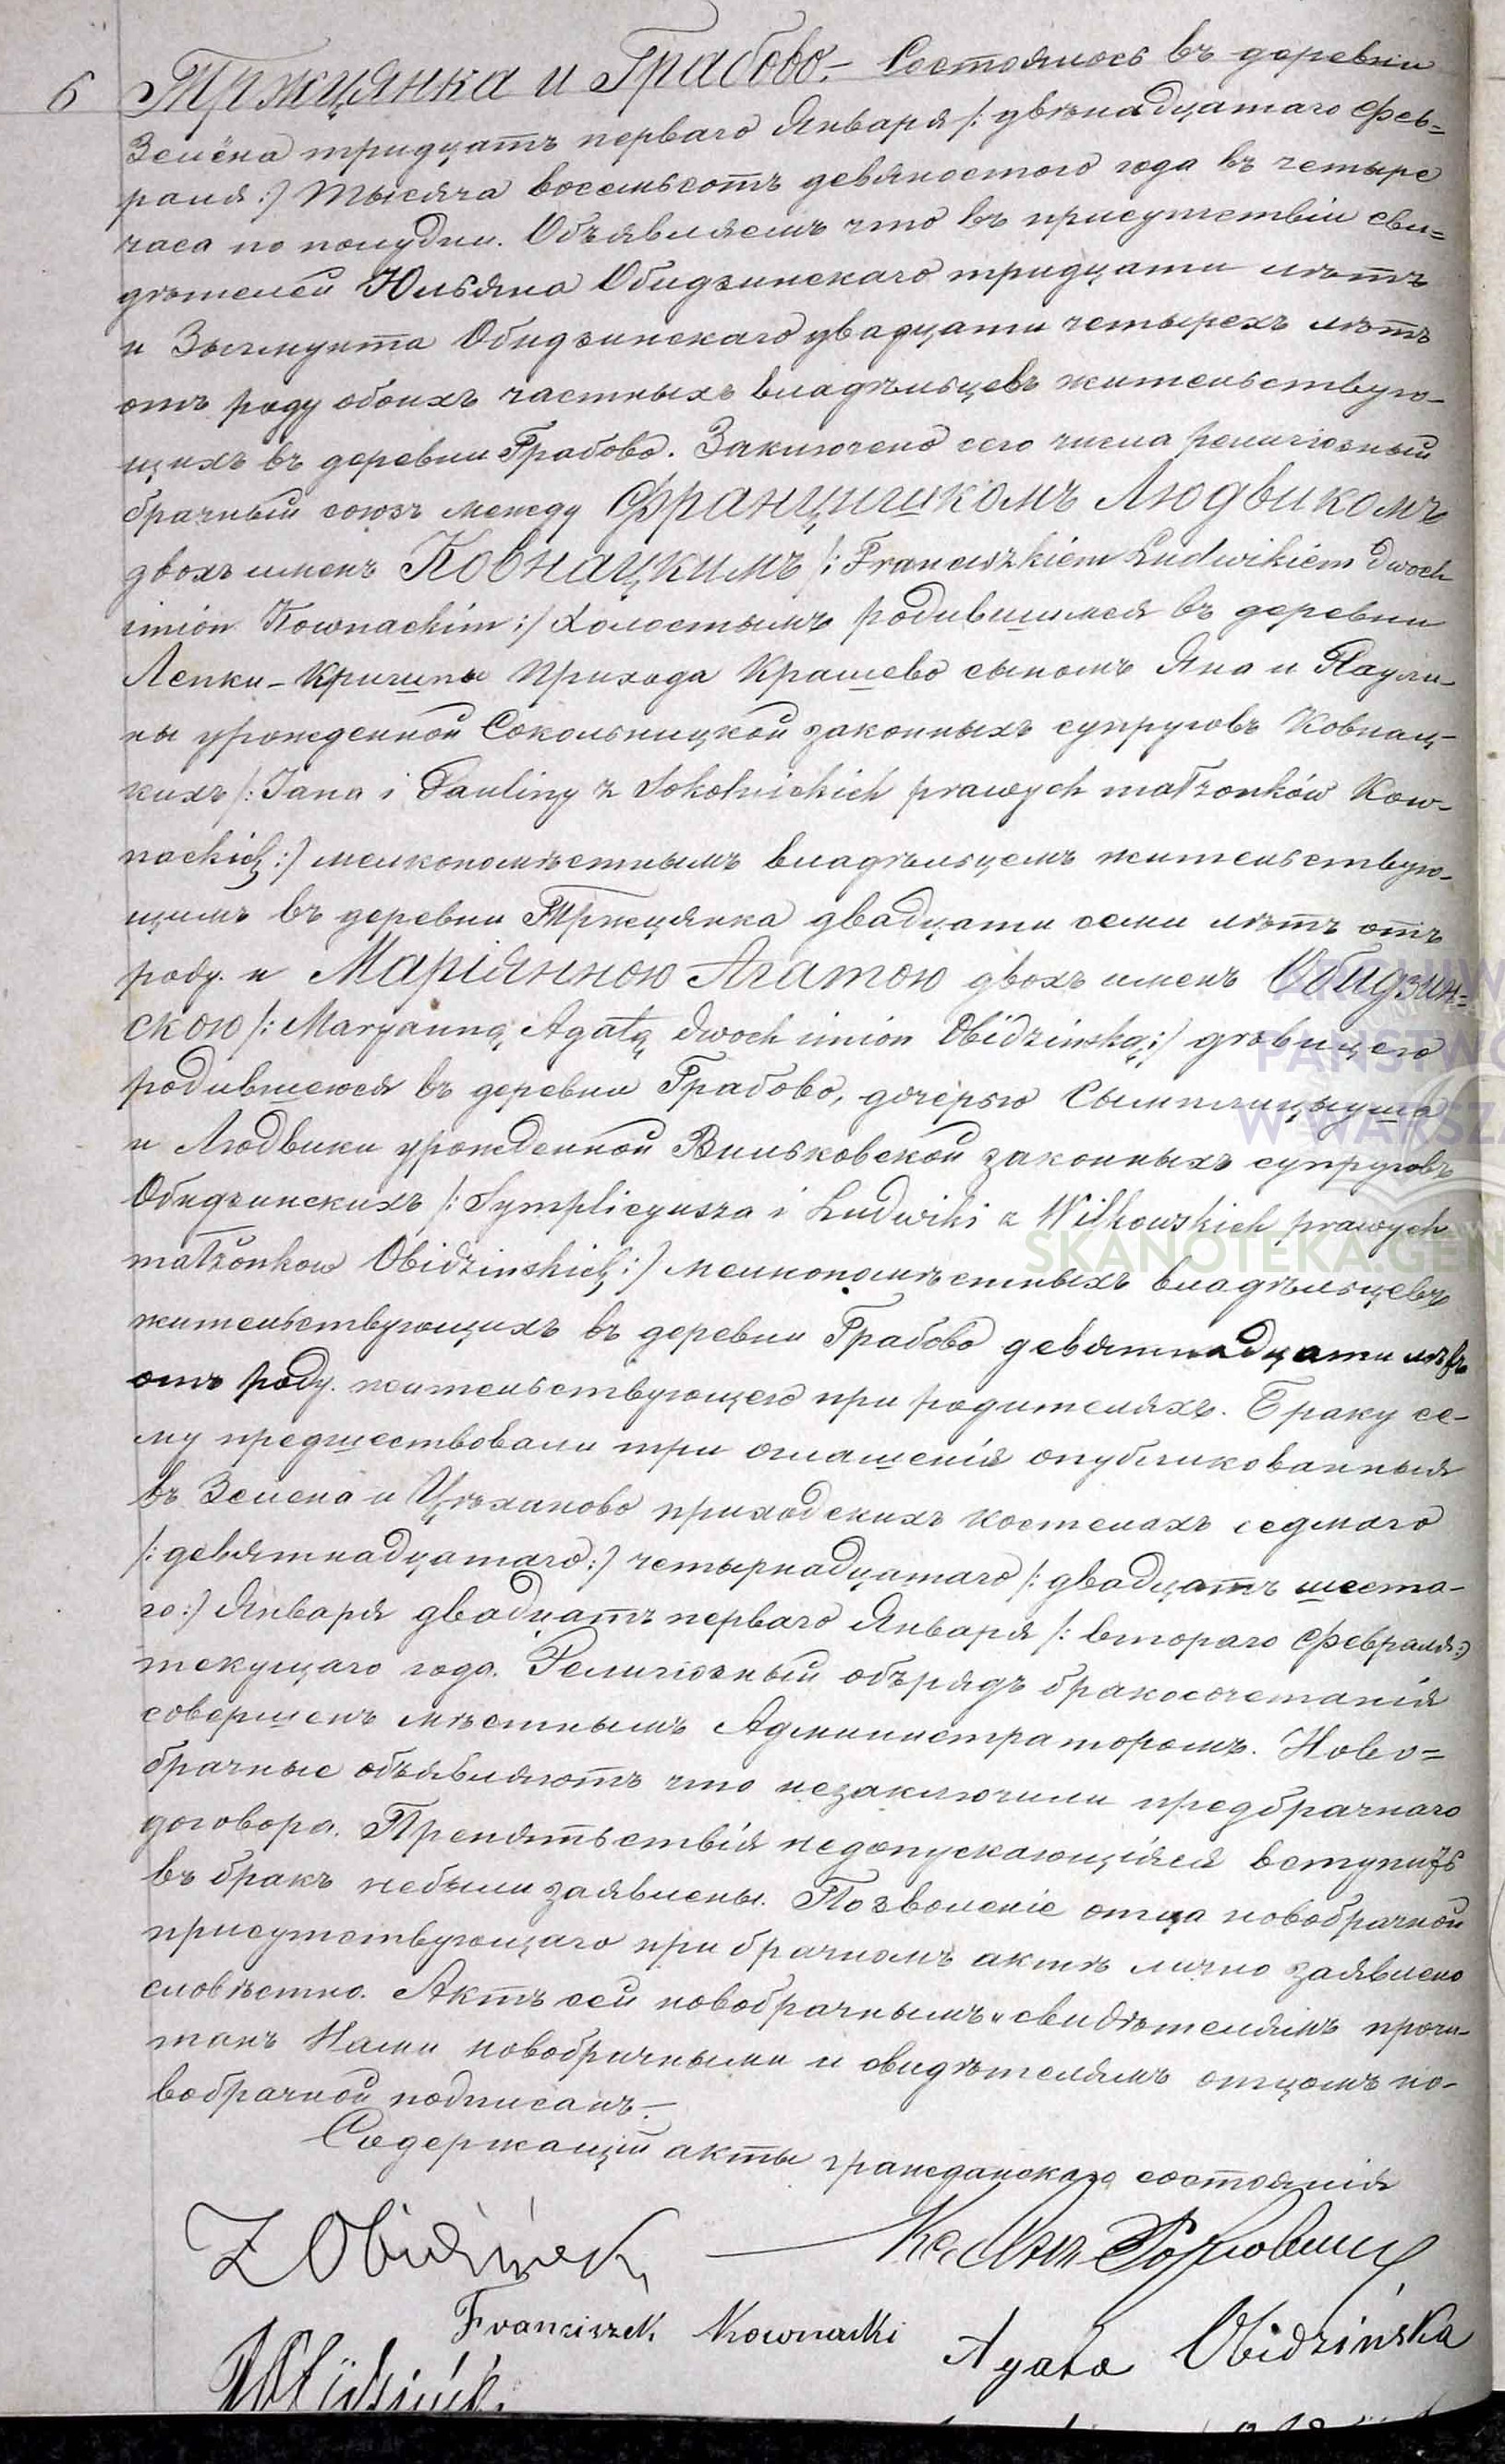 6 Тржцянка и Грабово.- Состоялось въ деревни
Зелёна тридцатъ перваго Января /: двѣнадцатаго Фев=
раля :/ Тысяча восемьсотъ девяностого года въ четыре
часа по полудни. Объявляемъ что въ присутствіи сви=
дѣтелей Юльяна Обидзинскаго тридцати лѣтъ
и Зыгмунта Обидзинскаго двадцати четырехъ лѣтъ
отъ роду обоихъ частныхъ владѣльцевъ жительствую-
щихъ въ деревни Грабово. Заключено сего числа религіозный
брачный союзъ между Францишкомъ Людвикомъ
двохъ именъ Ковнацкимъ /: Franciszkiem Ludwikiem dwoch
imion Kownackim :/ холостымъ родившимся въ деревни
Лепки-Кришпы прихода Крашево сыномъ Яна и Паули-
ны урожденной Сокольницкой законныхъ супруговъ Ковнац-
кихъ /: Jana i Pauliny z Sokolnickich prawych małżonków Kow-
nackich :/ мелкопомѣстнымъ владѣльцемъ жительствую-
щимъ въ деревни Тржцянка двадцати семи лѣтъ отъ
роду. и Маріянною Агатою двохъ именъ Обидзин=
скою /: Maryanną Agatą dwoch imion Obidzinską :/ дѣвицею
родившеюся въ деревни Грабово, дочерью Сымплицыуша
и Людвики урожденной Вильковской законныхъ супруговъ
Обидзинскихъ /: Symplicyusza i Ludwiki z Wilkowskich prawych
małżonkow Obidzinskich :/ мелкопомѣстныхъ владѣльцевъ
жительствующихъ въ деревни Грабово девятнадцати лѣтъ
отъ роду. жительствующею при родителяхъ. Браку се-
му предшествовали три оглашенія опубликованныя
въ Зелена и Цѣханово приходскихъ костелахъ седмаго
/: девятнадцатаго :/ четырнадцатаго /: двадцатъ шеста-
го :/ Января двадцатъ перваго Января /: втораго Февраля :/
текущаго года. Религіозный обърядъ бракосочетанія
совершенъ мѣстнымъ Администраторомъ. Ново=
брачные объявляютъ что незаключили предбрачнаго
договора. Препятьствія недопускающіяся вступить
въ бракъ небыли заявлены. Позволеніе отца новобрачной
присутствующаго при брачномъ актѣ лично заявлено
словѣстно. Актъ сей новобрачнымъ и свидѣтелямъ прочи-
танъ Нами новобрачными и свидѣтелямъ отцомъ но-
вобрачной подписанъ.-
Содержащій акты гражданскаго состоянія
Z Obidzinski
Franciszek Kownacki Agata Obidzińska
ARCHIW
PAŃSTWO
W WARSZA
SKANOTEKA.GEN